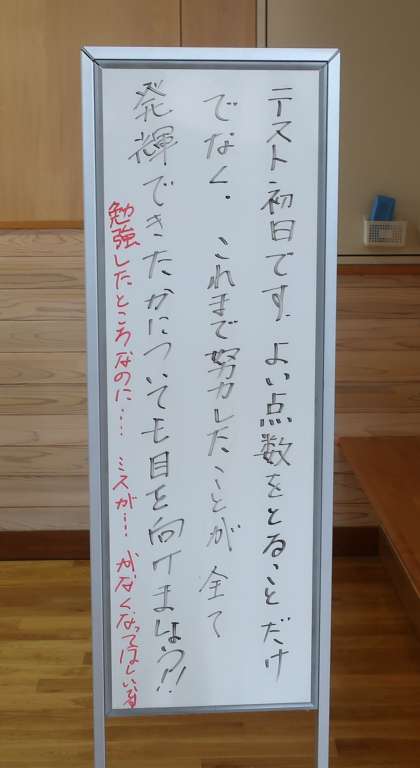 テスト初日です。よい点数をとることだけ
でなく、これまで努力したことが全て
発揮できたかについても目を向けましょう!!
勉強したところなのに… ミスが… がなくなってほしいな